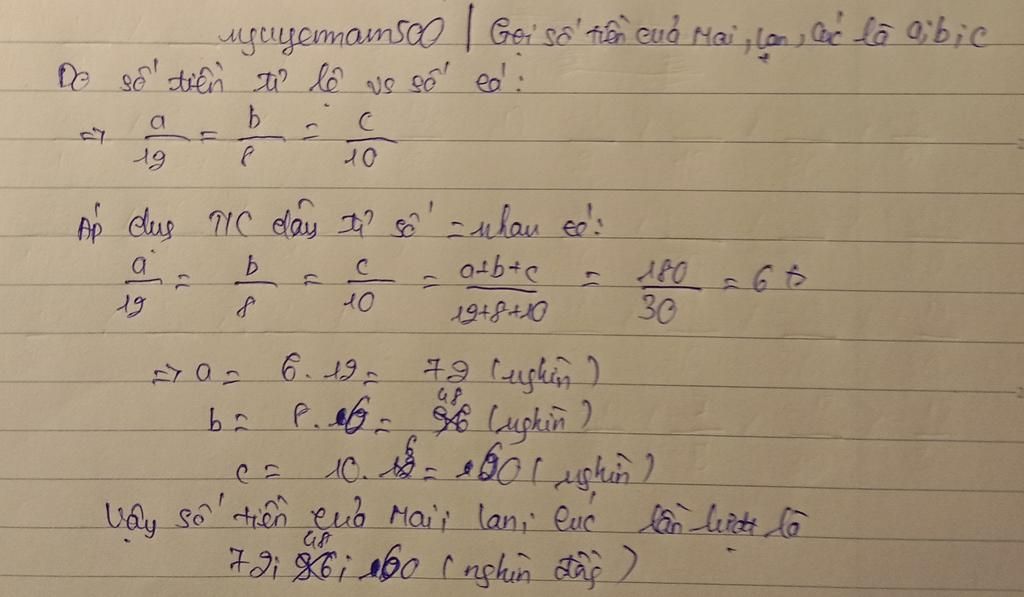 nguyenam500 | Gọi số tiền của Mai, Lan, Cúc là a; b; c
Do số tiền tỉ lệ vs số có:
=> a/12 = b/8 = c/10
Áp dụg T/C dãy tỉ số = nhau có:
a/12 = b/8 = c/10 = a+b+c/12+8+10 = 180/30 = 6
=> a = 6.12 = 72 (nghìn)
b = 8.6 = 48 (nghìn)
c = 10.6 = 60 (nghìn)
Vậy số tiền của Mai; Lan; Cúc lần lượt là
72; 48; 60 (nghìn đồng)